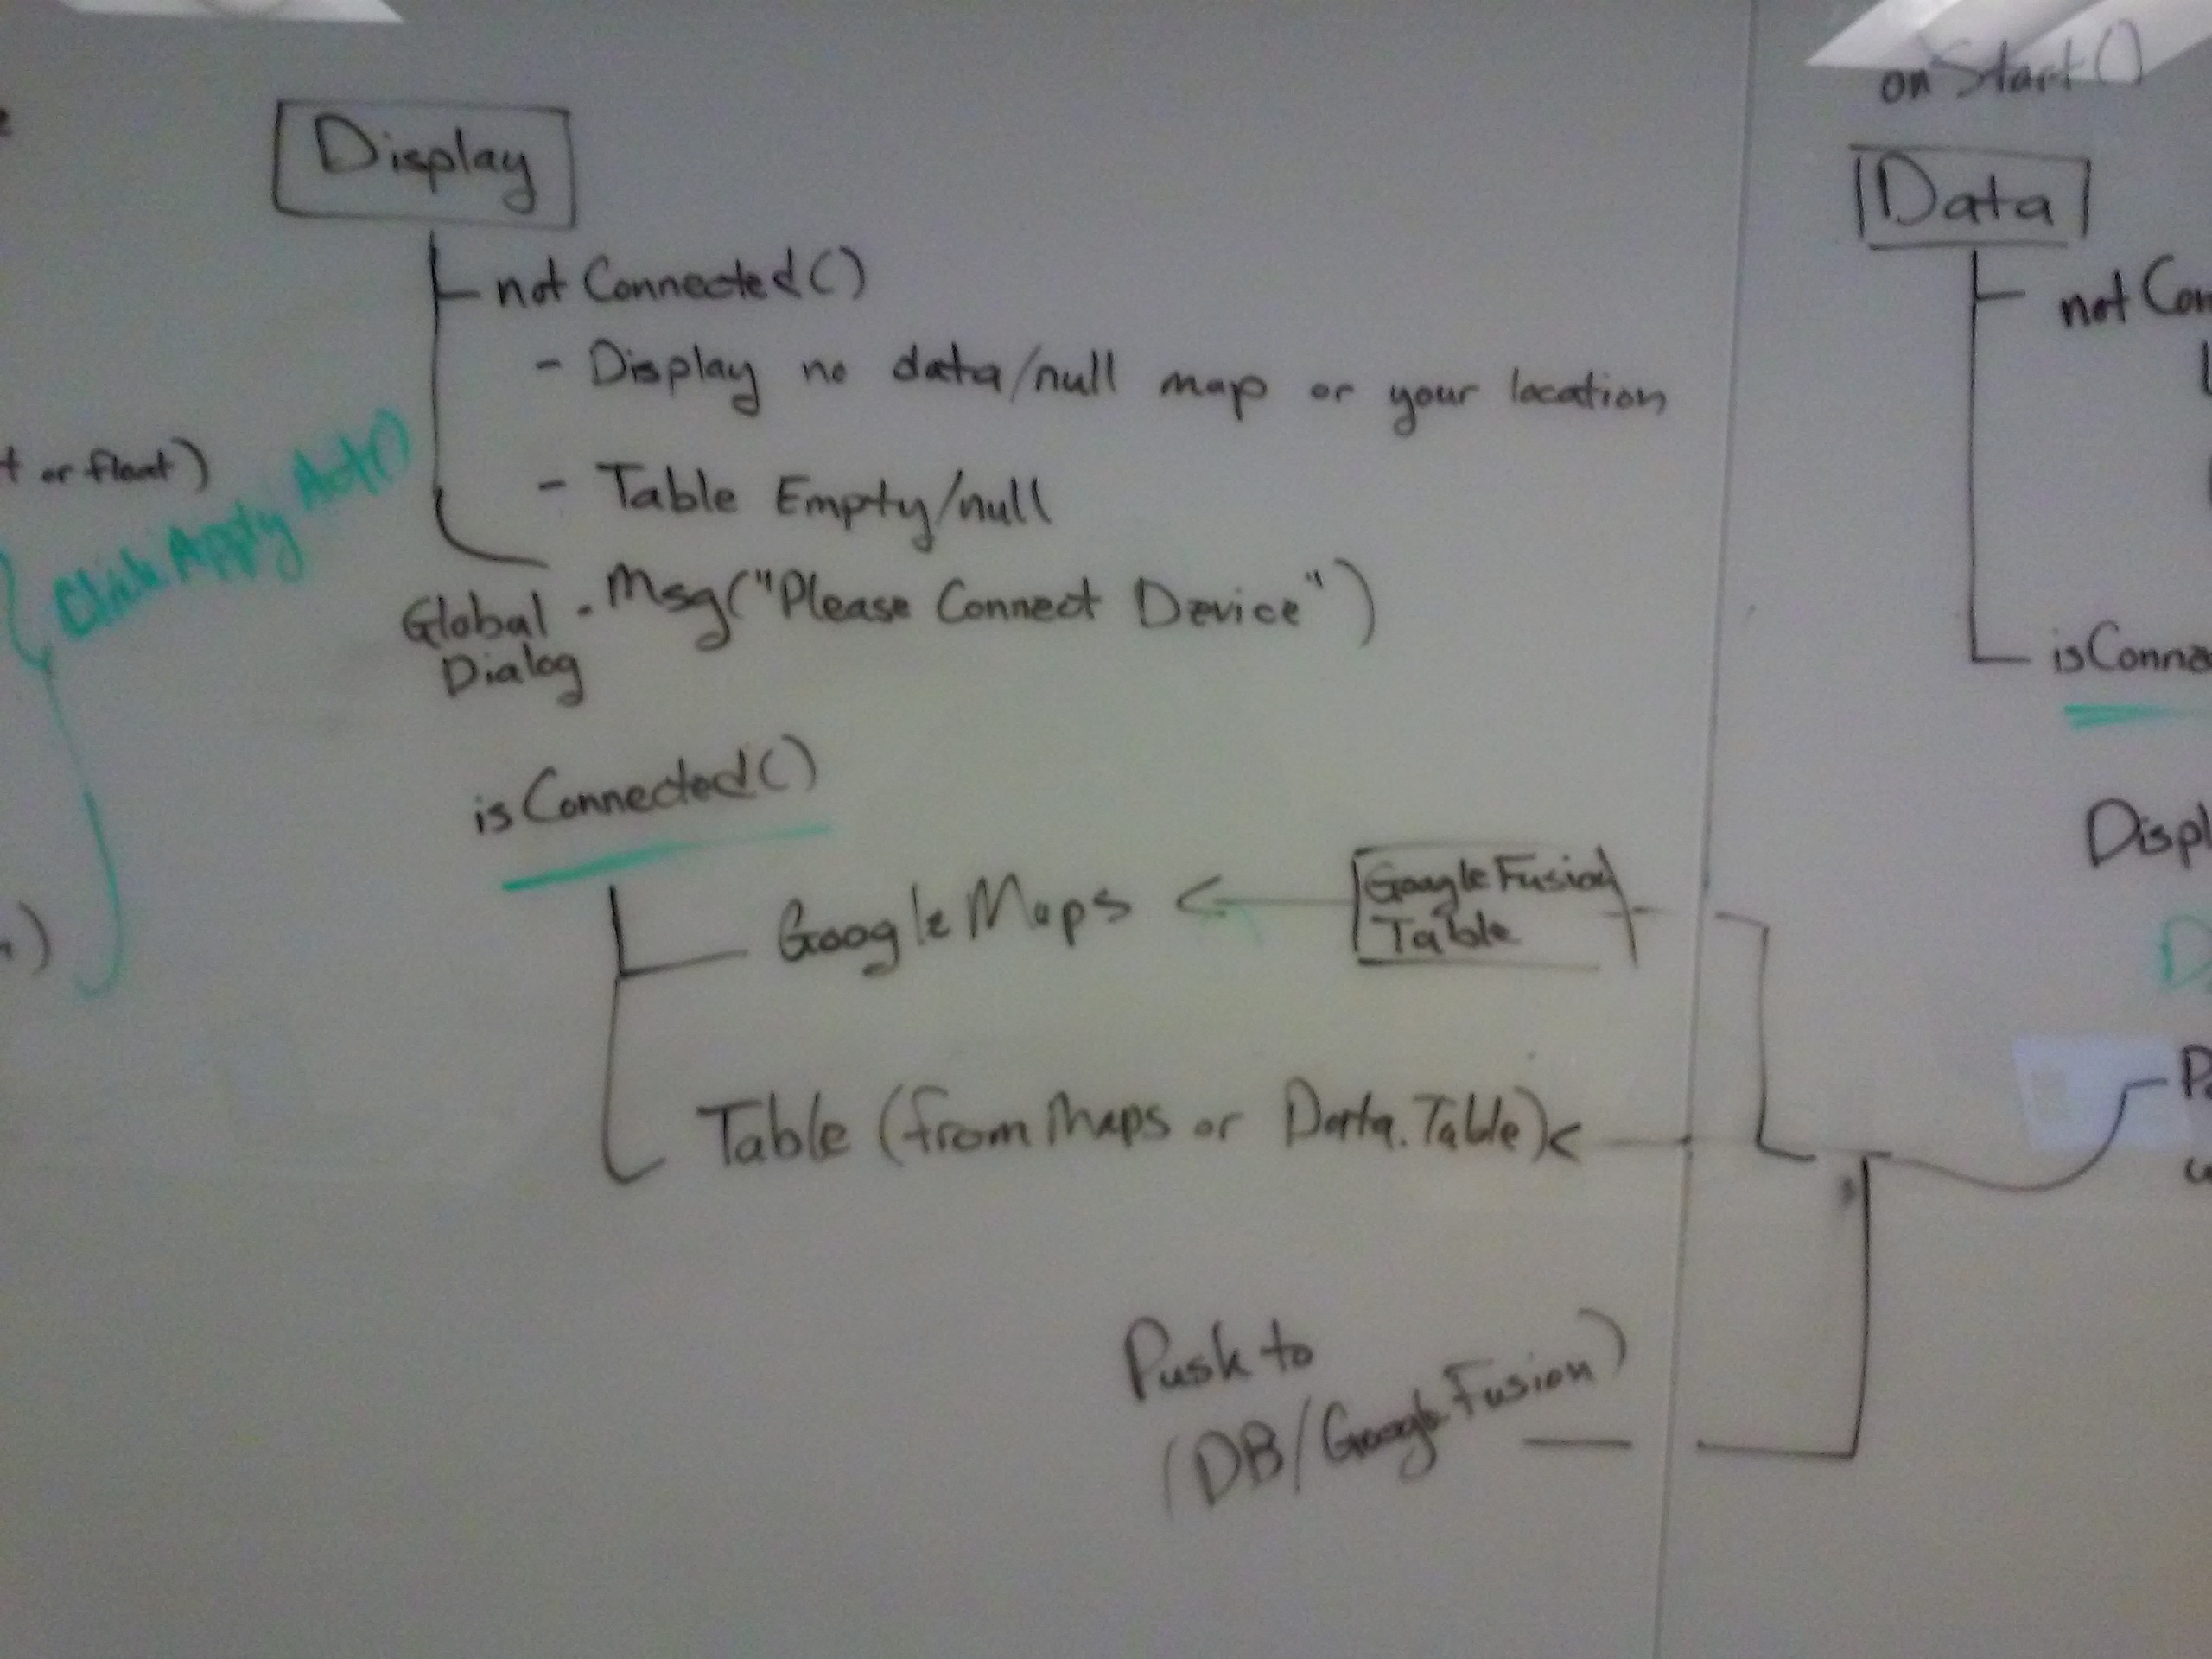 Display
not Connected()
- Display no data/null map or your location
- Table Empty/null
Global Dialog - Msg("Please Connect Device")
isConnected()
Google Maps
Google Fusion
Table
Table (from Maps or Data.Table)
Push to
(DB/Google Fusion)
or float)
Click Apply
onStart()
Data
not Con
isConne
Displ